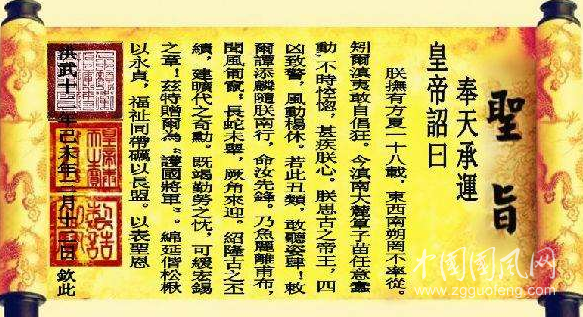 聖旨
奉天承運
皇帝詔曰
朕撫有方夏一十八載，東西南朔罔不率從。
矧爾滇夷敢自昌狂。今滇南大麓草子苗任意蠢
動，不時控惚，甚疾朕心。朕思古之帝王，四
凶致警，風動楊休。若此丑類，敢聽姿肆！敕
爾譚添麟隨朕南行，命汝先鋒。乃魚麗甫布，
聞風俯竄，長蛇未舉，厥角來迎。紹隆古之丕
績，建曠代之奇勳。既竭勤勞之忱，可緩宏錫
之章！茲特贈爾為“護國將軍”。綿延偕松楸
以永貞，福祉同帶礪以長盟。以表聖恩
洪武十二年己未年二月十三日 欽此
中国国风网
www.zgguofeng.com